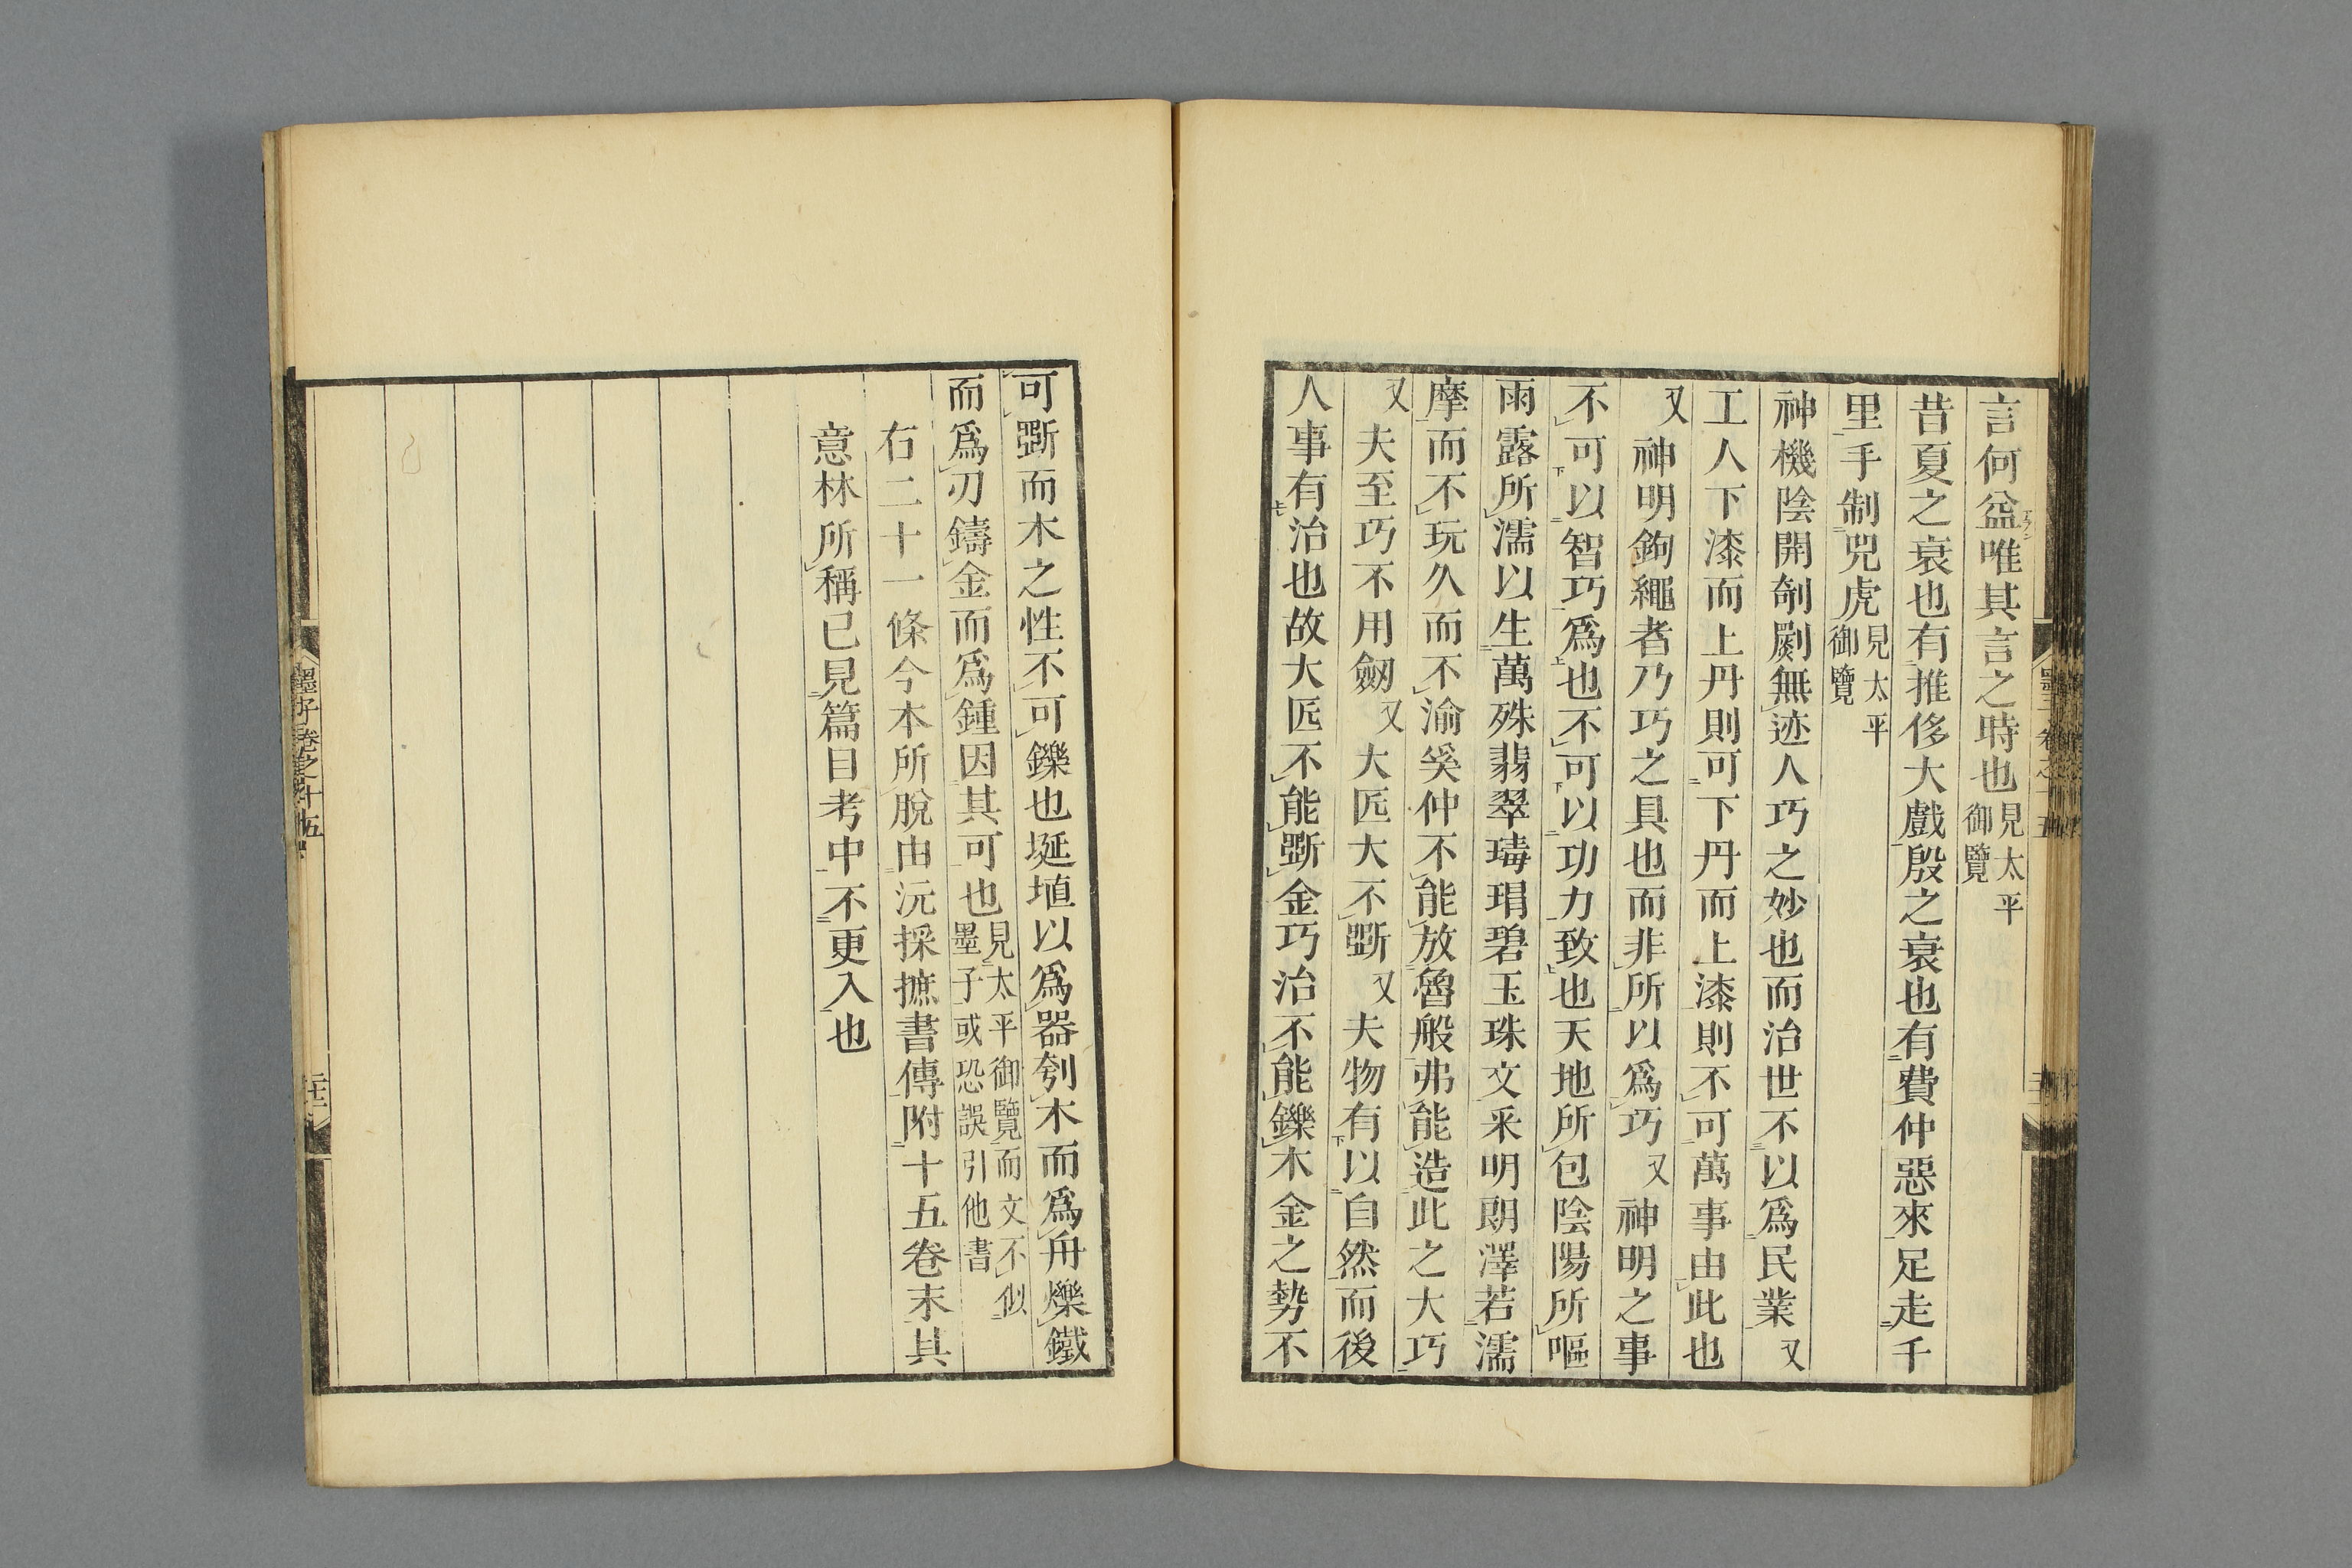 言何益唯其言之時也見太平御覽
昔夏之衰也有推侈大戲殷之衰也有費仲惡來足走千
里手制兕虎見太平御覽
神機陰開剞劂無迹人巧之妙也而治世不以爲民業又
工人下漆而上丹則可下丹而上漆則不可萬事由此也
又神明鉤繩者乃巧之具也而非所以爲巧又神明之事
不可以智巧爲也不可以功力致也天地所包陰陽所嘔
雨露所濡以生萬殊翡翠瑇瑁碧玉珠文采明朗澤若濡
摩而不玩久而不渝奚仲不能放魯般弗能造此之大巧
又夫至巧不用劒又大匠大不斲又夫物有以自然而後
人事有治也故大匠不能斲金巧治不能鑠木金之勢不
可斲而木之性不可鑠也埏埴以爲器刳木而爲舟爍鐵
而爲刃鑄金而爲鍾因其可也見太平御覽而文不似墨子或恐誤引他書
右二十一條今本所脫由沅採摭書傳附十五卷末其
意林所稱已見篇目考中不更入也
墨子卷之十五